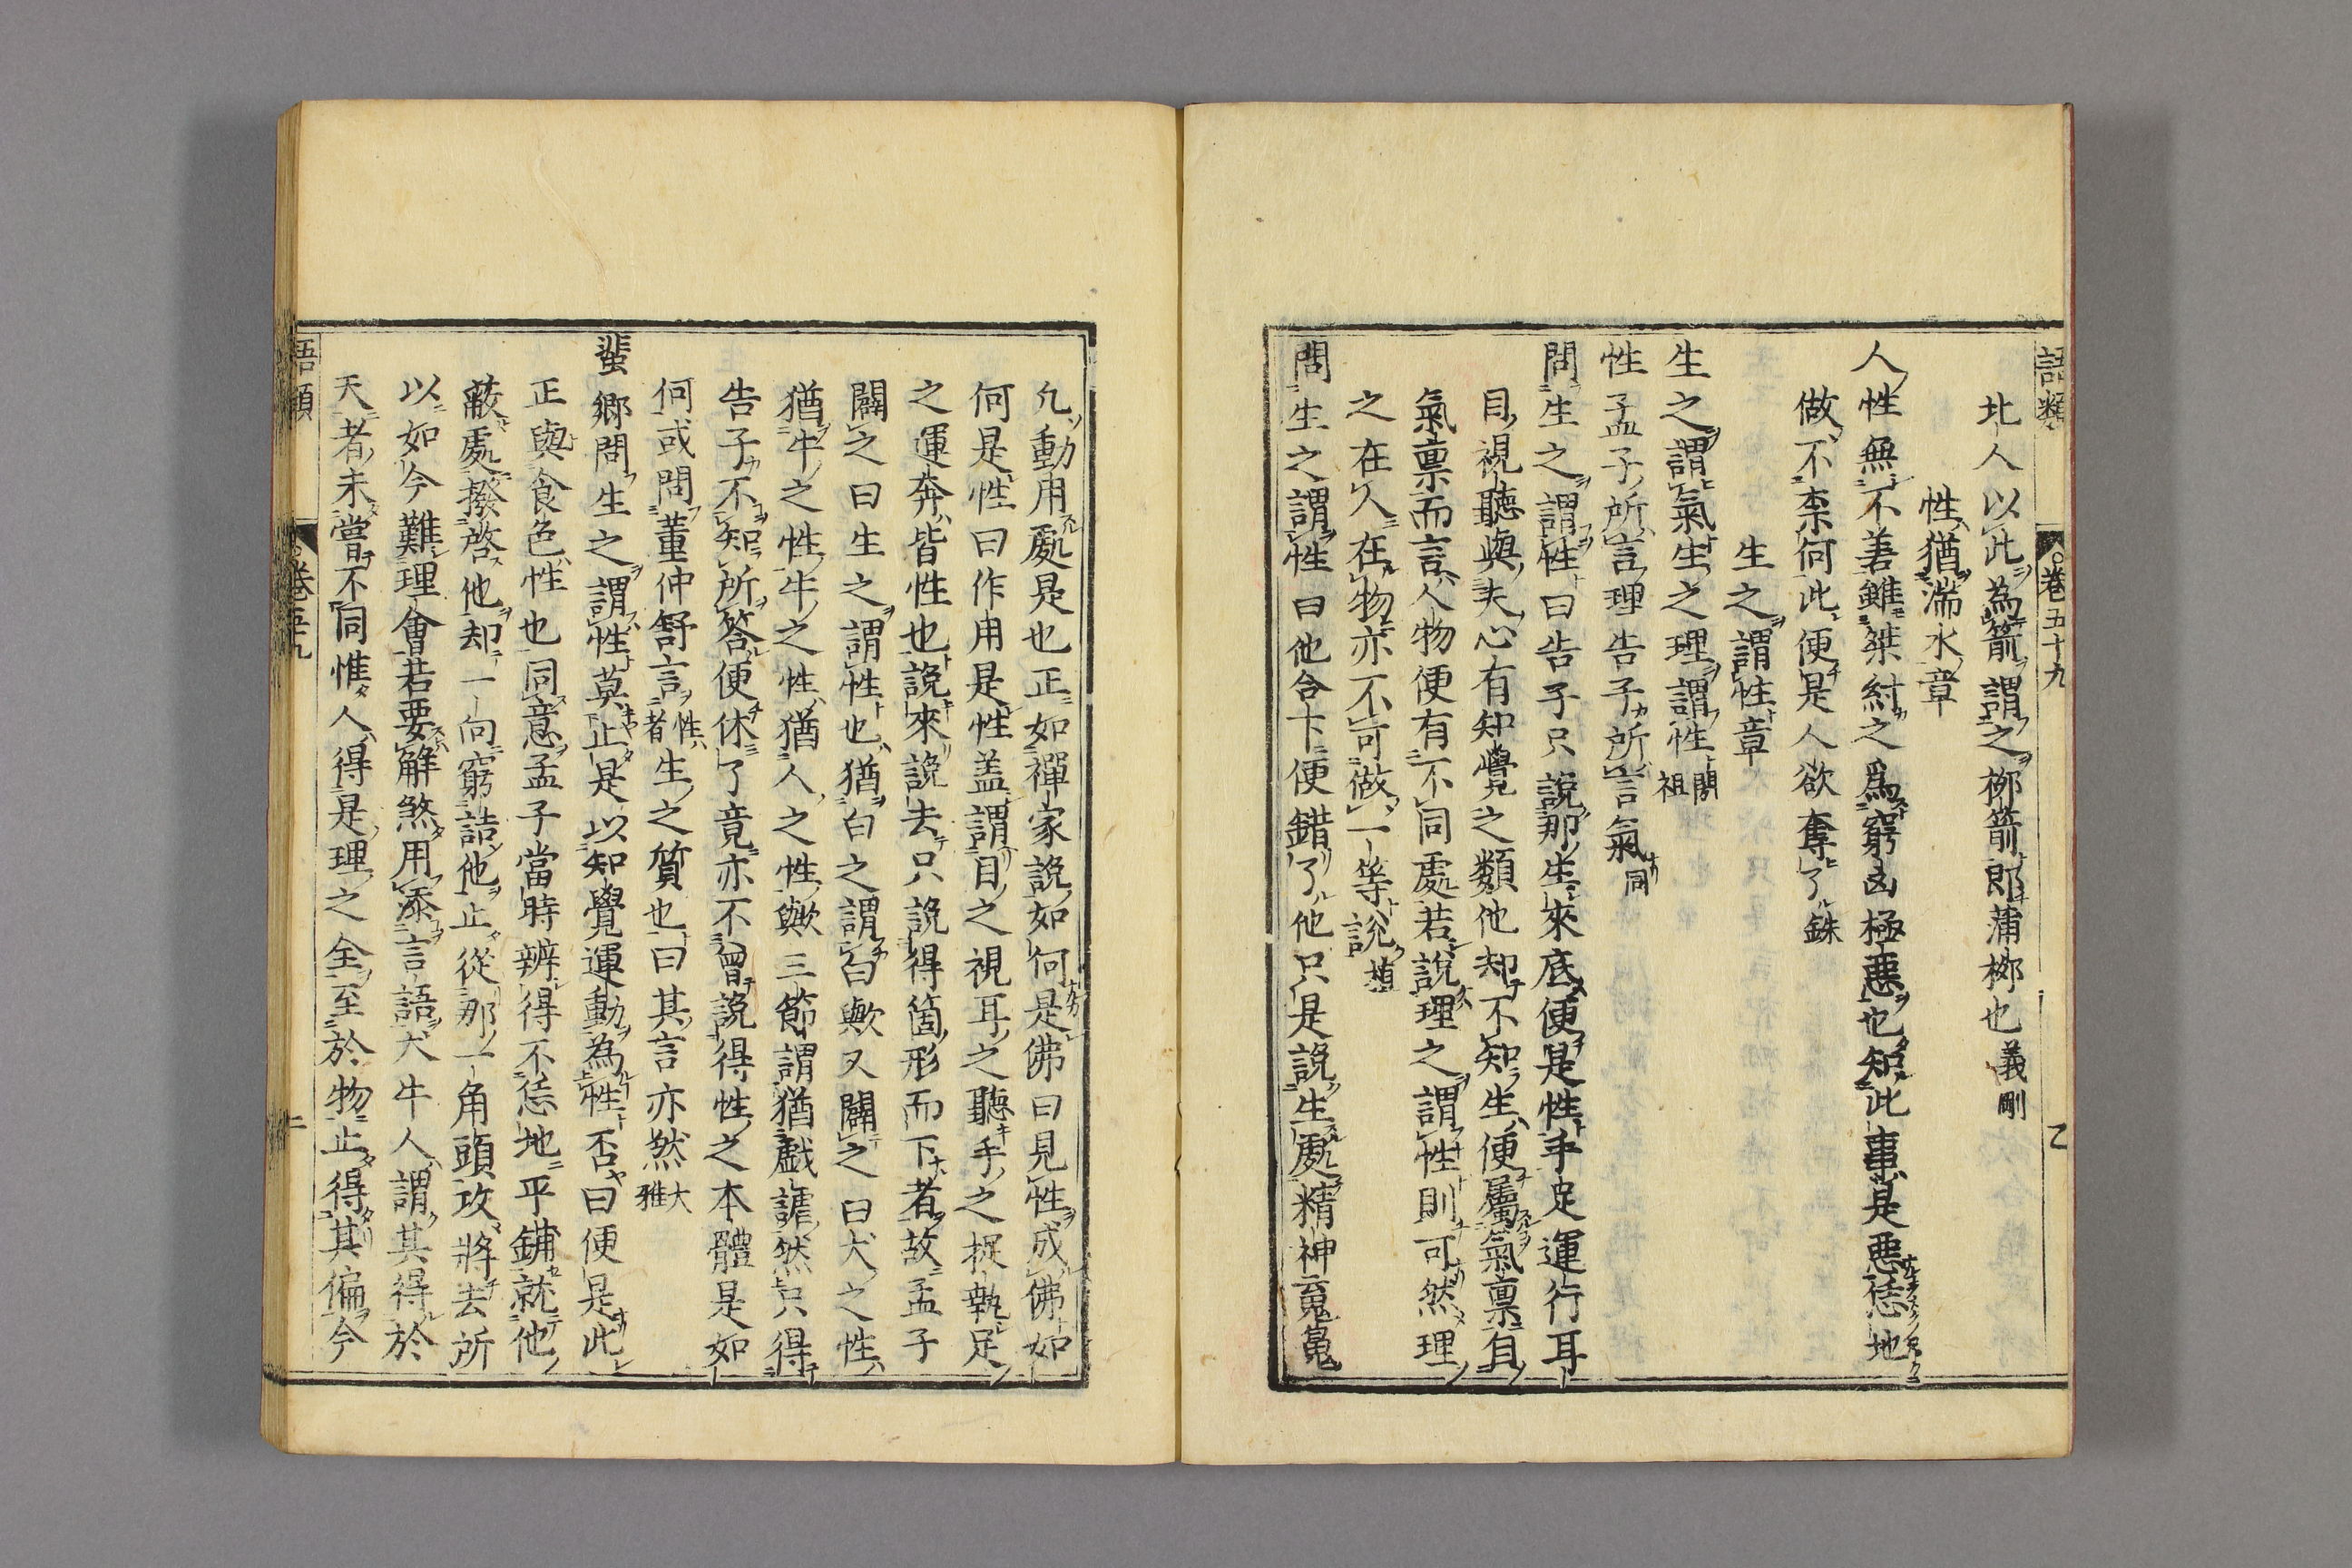 語類 卷五十九 乙
北人以此為箭謂之桞箭郎蒲桞也義剛
性猶湍水章
人性無不善雖桀紂之爲窮凶極惡也知此事是惡恁地
做不柰何此便是人欲奪了銖
生之謂性章
生之謂氣生之理謂性閎祖
性孟子所言理告子所言氣同
問生之謂性曰告子只說那生來底便是性手足運行耳
目視聽與夫心有知覺之類他却不知生便屬氣禀自
氣禀而言人物便有不同處若說理之謂性則可然理
之在人在物亦不可做一等說植
問生之謂性曰他合下便錯了他只是說生處精神䰟䰟
凢動用處是也正如禪家說如何是佛曰見性成佛如
何是性曰作用是性盖謂目之視耳之聽手之捉執足
之運奔皆性也說來說去只說得箇形而下者故孟子
闢之曰生之謂性也猶白之謂白歟又闢之曰犬之性
猶牛之性牛之性猶人之性歟三節謂猶戲謔然只得
告子不知所答便休了竟亦不曾說得性之本體是如
何或問董仲舒言性者生之質也曰其言亦然大雅
蜚卿問生之謂性莫止是以知覺運動為性否曰便是此
正與食色性也同意孟子當時辨得不恁地平鋪就他
蔽處撥啓他却一向窮詰他止從那一角頭攻將去所
以如今難理會若要解煞用添言語犬牛人謂其得於
天者未嘗不同惟人得是理之全至於物止得其偏今
語類 卷五十九 二